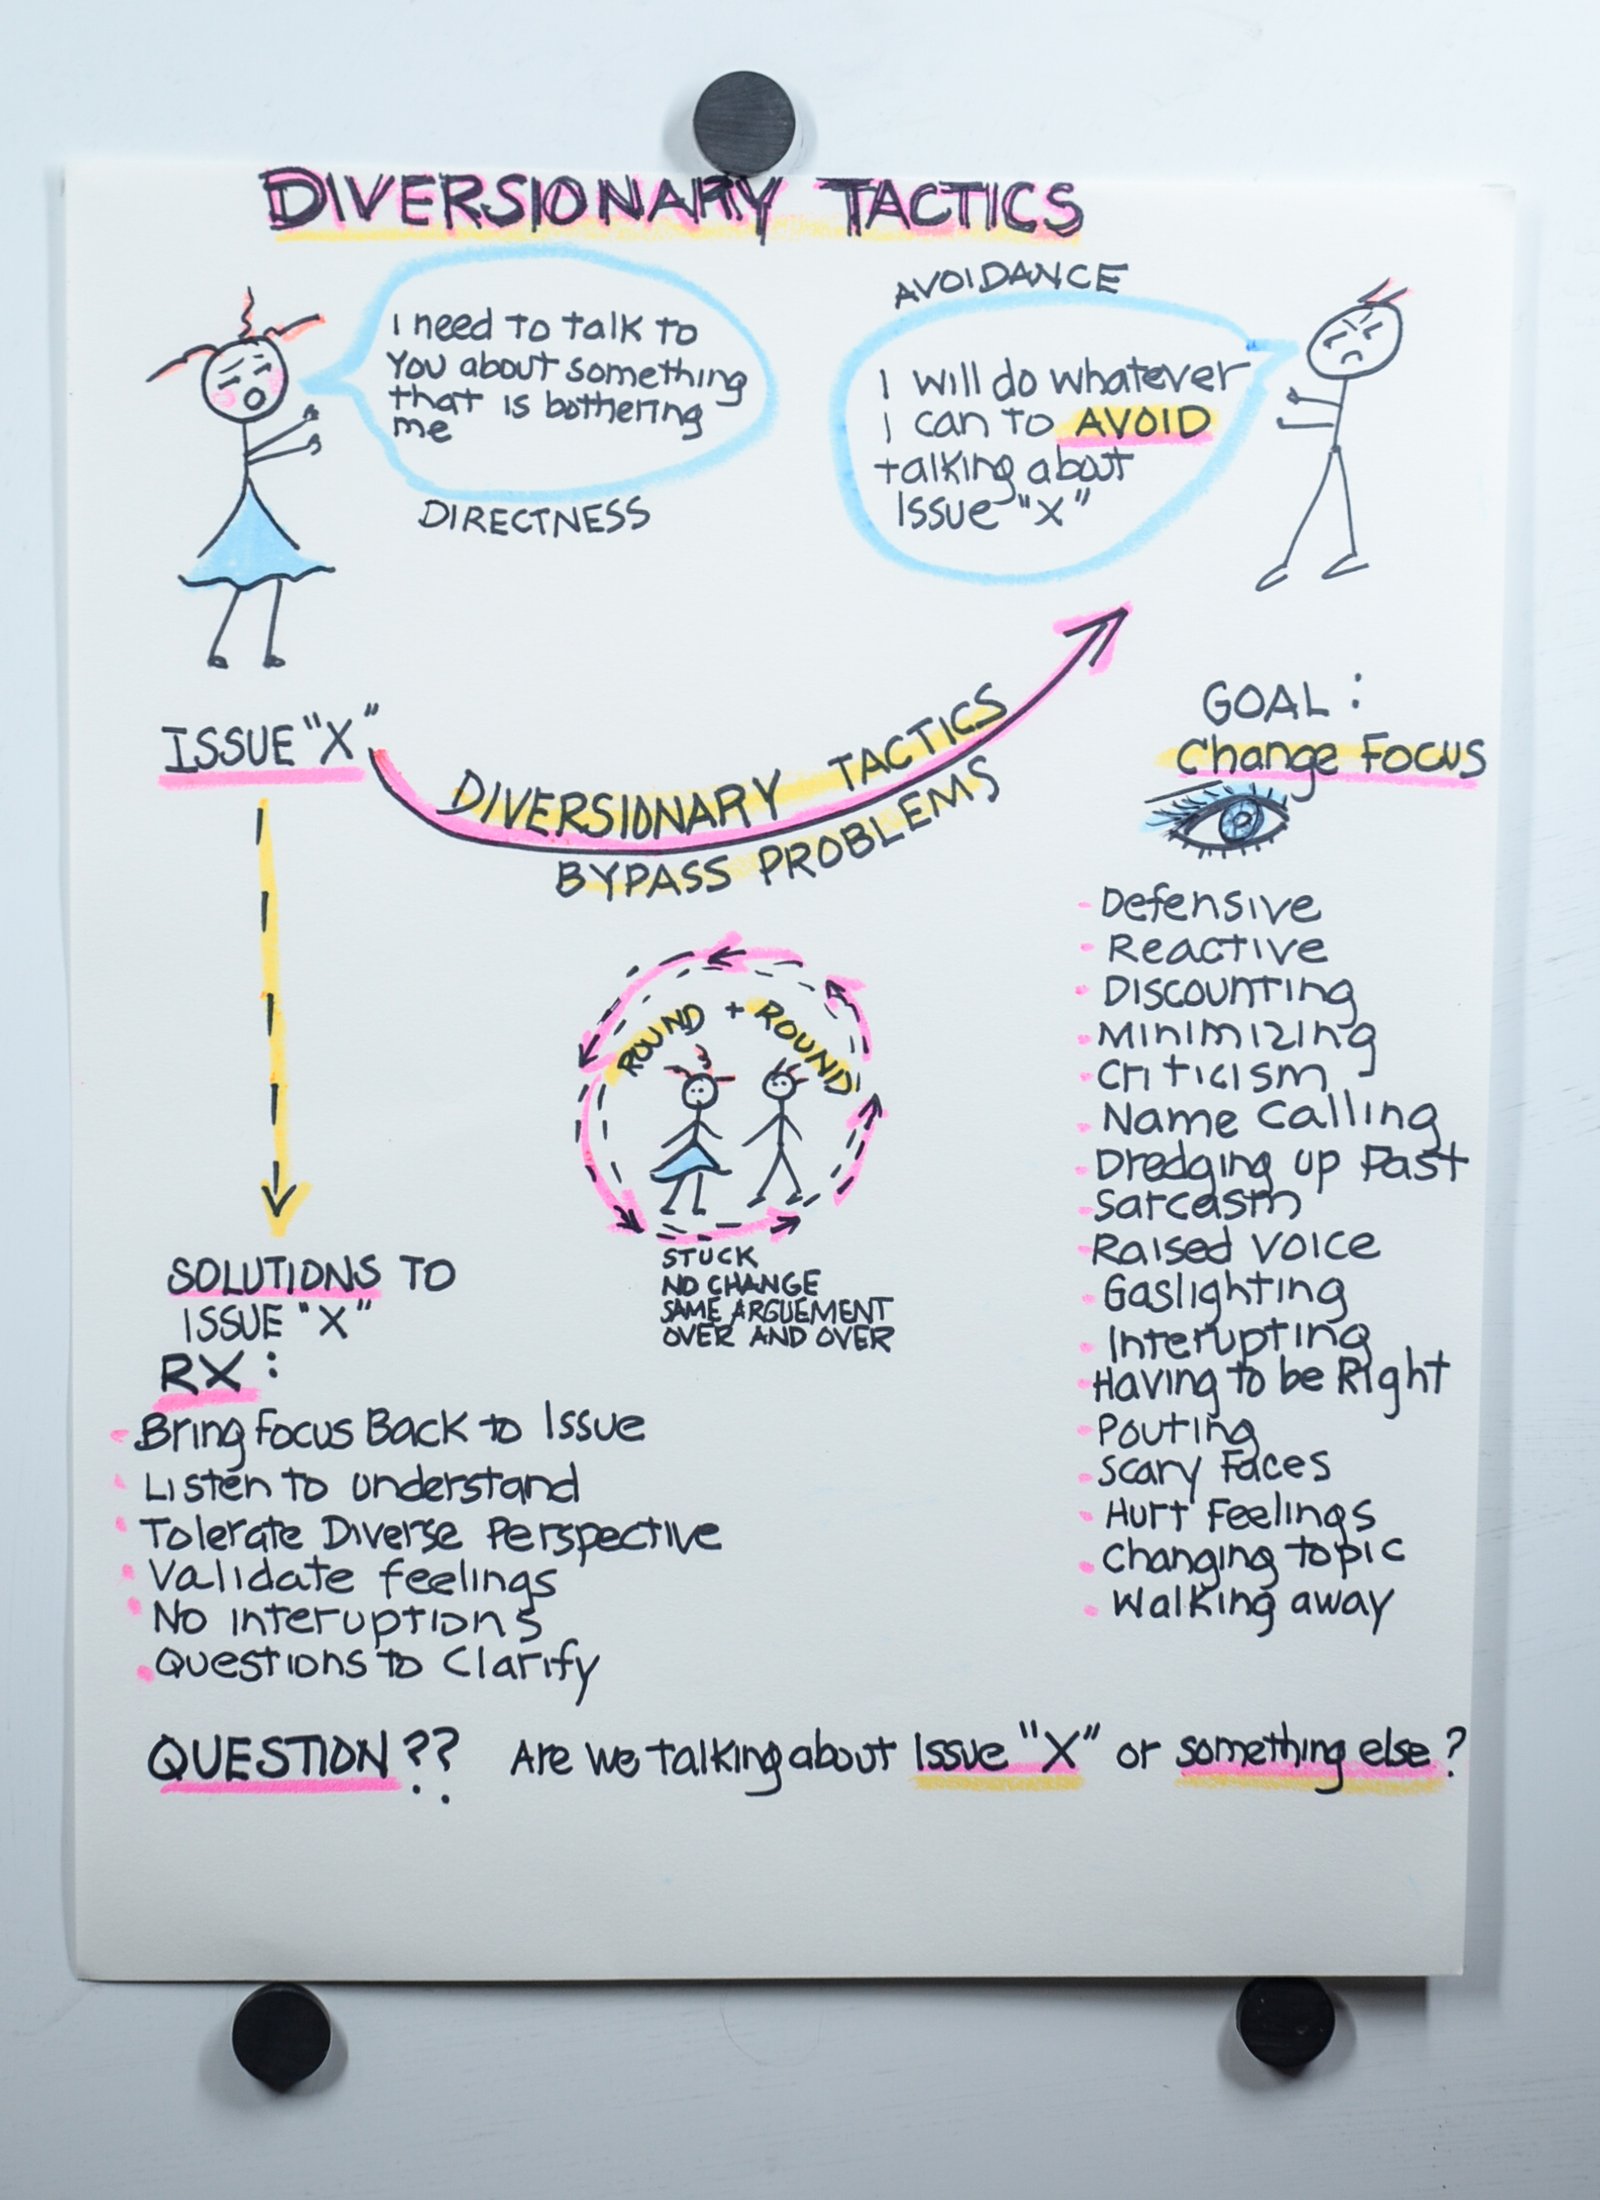 DIVERSIONARY TACTICS
I need to talk to
you about something
that is bothering
me
DIRECTNESS
AVOIDANCE
I will do whatever
I can to AVOID
talking about
Issue "X"
ISSUE "X"
DIVERSIONARY TACTICS
BYPASS PROBLEMS
GOAL:
Change Focus
- Defensive
- Reactive
- Discounting
- Minimizing
- Criticism
- Name Calling
- Dredging up Past
- Sarcasm
- Raised Voice
- Gaslighting
- Interupting
- Having to be Right
- Pouting
- Scary Faces
- Hurt Feelings
- Changing topic
- Walking away
ROUND + ROUND
STUCK
NO CHANGE
SAME ARGUEMENT
OVER AND OVER
SOLUTIONS TO
ISSUE "X"
RX:
- Bring Focus Back to Issue
- Listen to understand
- Tolerate Diverse Perspective
- Validate feelings
- No interuptions
- Questions to Clarify
QUESTION?? Are we talking about Issue "X" or something else?